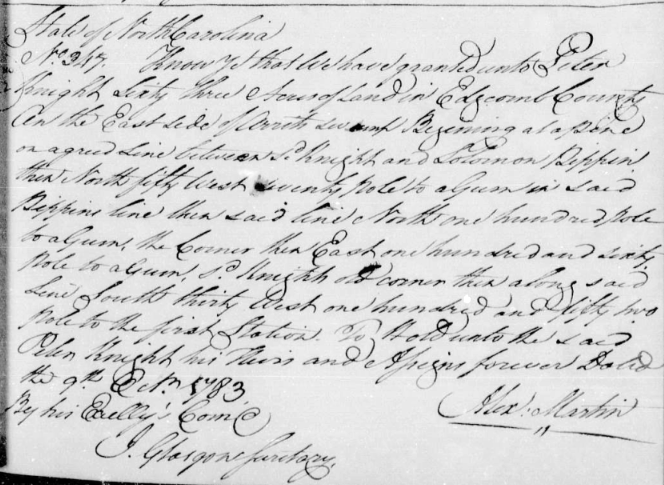 State of North Carolina
No. 347. Know Ye that We have granted unto Peter
Knight sixty three Acres of Land in Edgcomb County
On the East side of swamp Begening at a pine
on agreed line between Sd. Knight and Solomon Peppin
then North fifty West seventy Pole to a Gum in said
Peppins line then said line North one hundred pole
to a Gum, the Corner then East one hundred and sixty
Pole to a Gum, Sd. Knight old corner then along said
line South thirty West one hundred and fifty two
Pole to the first Station. To Hold unto the said
Peter Knight his Heirs and Assigns forever Dated
the 9th Octr. 1783
By his Excelly's Com Alex: Martin
J. Glasgow Secretary,